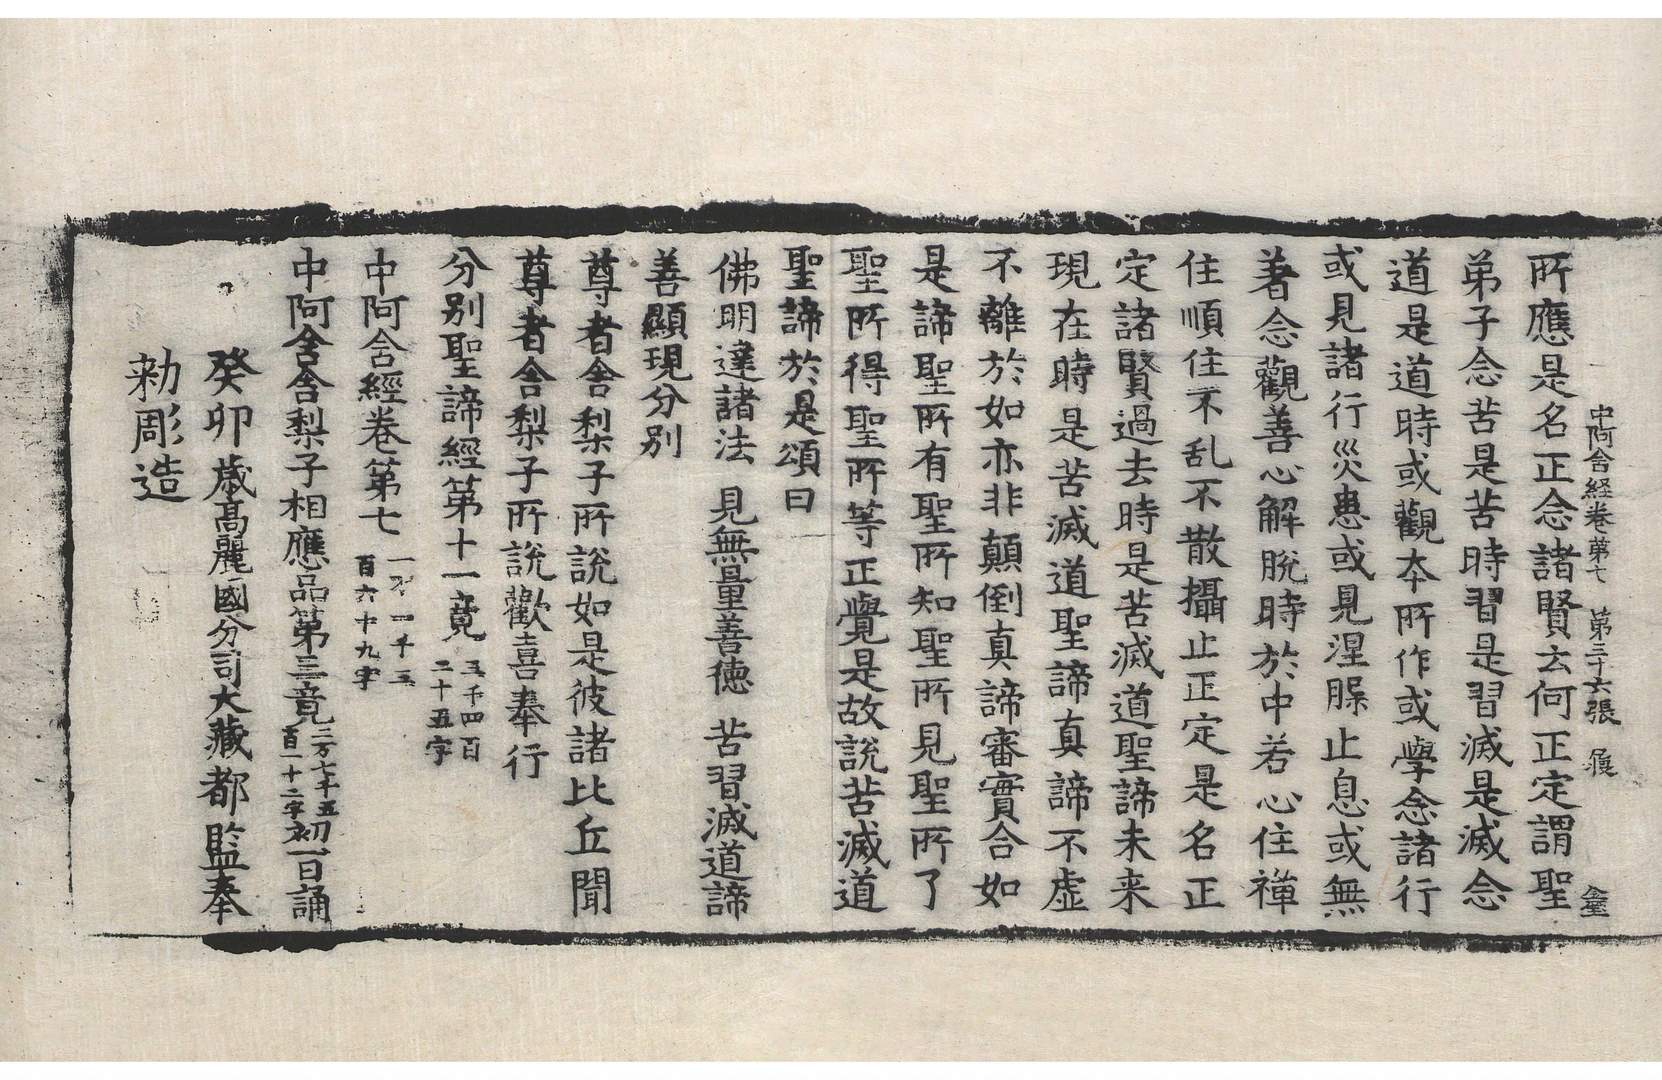 中阿含経卷第七 第三十六張 履
所應是名正念諸賢云何正定謂聖
弟子念苦是苦時習是習滅是滅念
道是道時或觀本所作或學念諸行
或見諸行災患或見涅脲止息或無
著念觀善心解脫時於中若心住禪
住順住不乱不散攝止正定是名正
定諸賢過去時是苦滅道聖諦未来
現在時是苦滅道聖諦真諦不虛
不離於如亦非顛倒真諦審實合如
是諦聖所有聖所知聖所見聖所了
聖所得聖所等正覺是故說苦滅道
聖諦於是頌曰
佛明達諸法 見無量善德 苦習滅道諦
善顯現分別
尊者舍梨子所說如是彼諸比丘聞
尊者舍梨子所說歡喜奉行
分別聖諦經第十一竟 五千四百二十五字
中阿含經卷第七 百六十九字
中阿含舍梨子相應品第三竟 三万七千五百一十二字 初一日誦
癸卯歳高麗國分司大藏都監奉
勑彫造